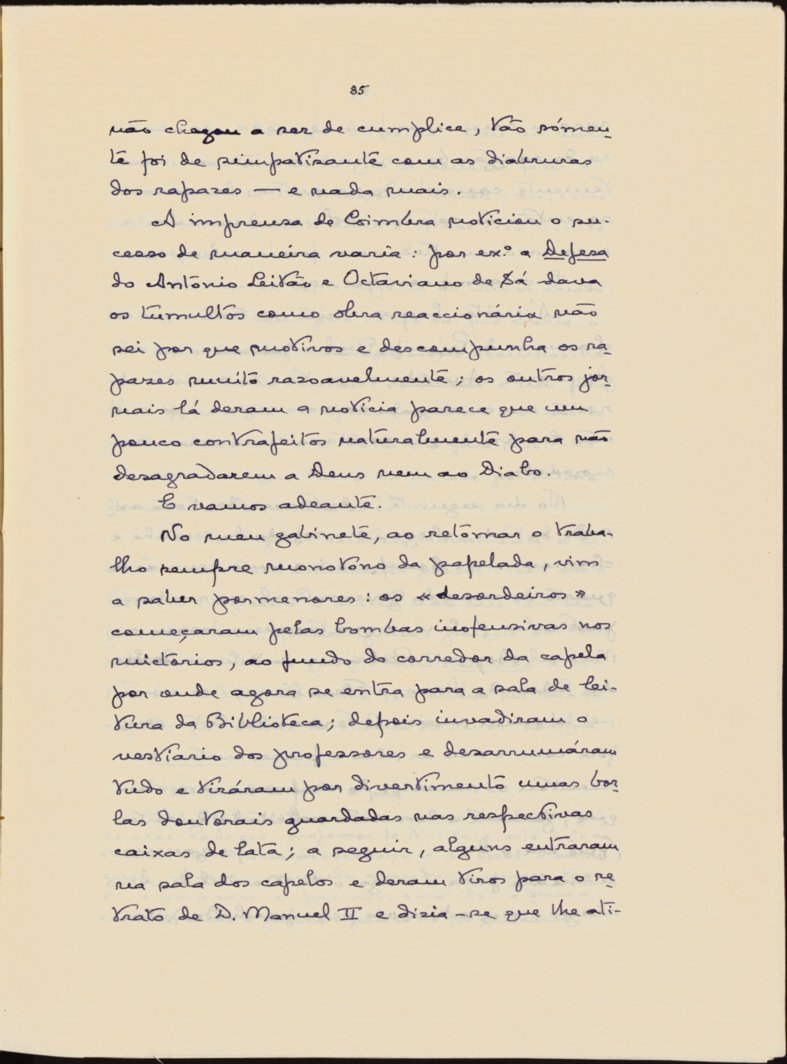 35
não chegou a ser de cumplice, tão sómen-
te foi de simpatisante com as diabruras
dos rapazes — e nada mais.
A imprensa de Coimbra noticiou o su-
cesso de maneira varia: por ex.º a Defesa
do António Leitão e Octaviano de Sá dava
os tumultos como obra reaccionária não
sei por que motivos e descompunha os ra-
pazes muito razoavelmente; os outros jor-
nais lá deram a noticia parece que um
pouco contrafeitos naturalmente para não
desagradarem a Deus nem ao Diabo.
E vamos adeante.
No meu gabinete, ao retomar o traba-
lho sempre monotono da papelada, vim
a saber pormenores: os «desordeiros»
começaram pelas bombas inofensivas nos
mictorios, ao fundo do corredor da capela
por onde agora se entra para a sala de lei-
tura da Biblioteca; depois invadiram o
vestiario dos professores e desarrumáram
tudo e tiráram por divertimento umas bor-
las doutorais guardadas nas respectivas
caixas de lata; a seguir, alguns entraram
na sala dos capelos e deram tiros para o re-
trato de D. Manuel II e dizia-se que lhe ati-